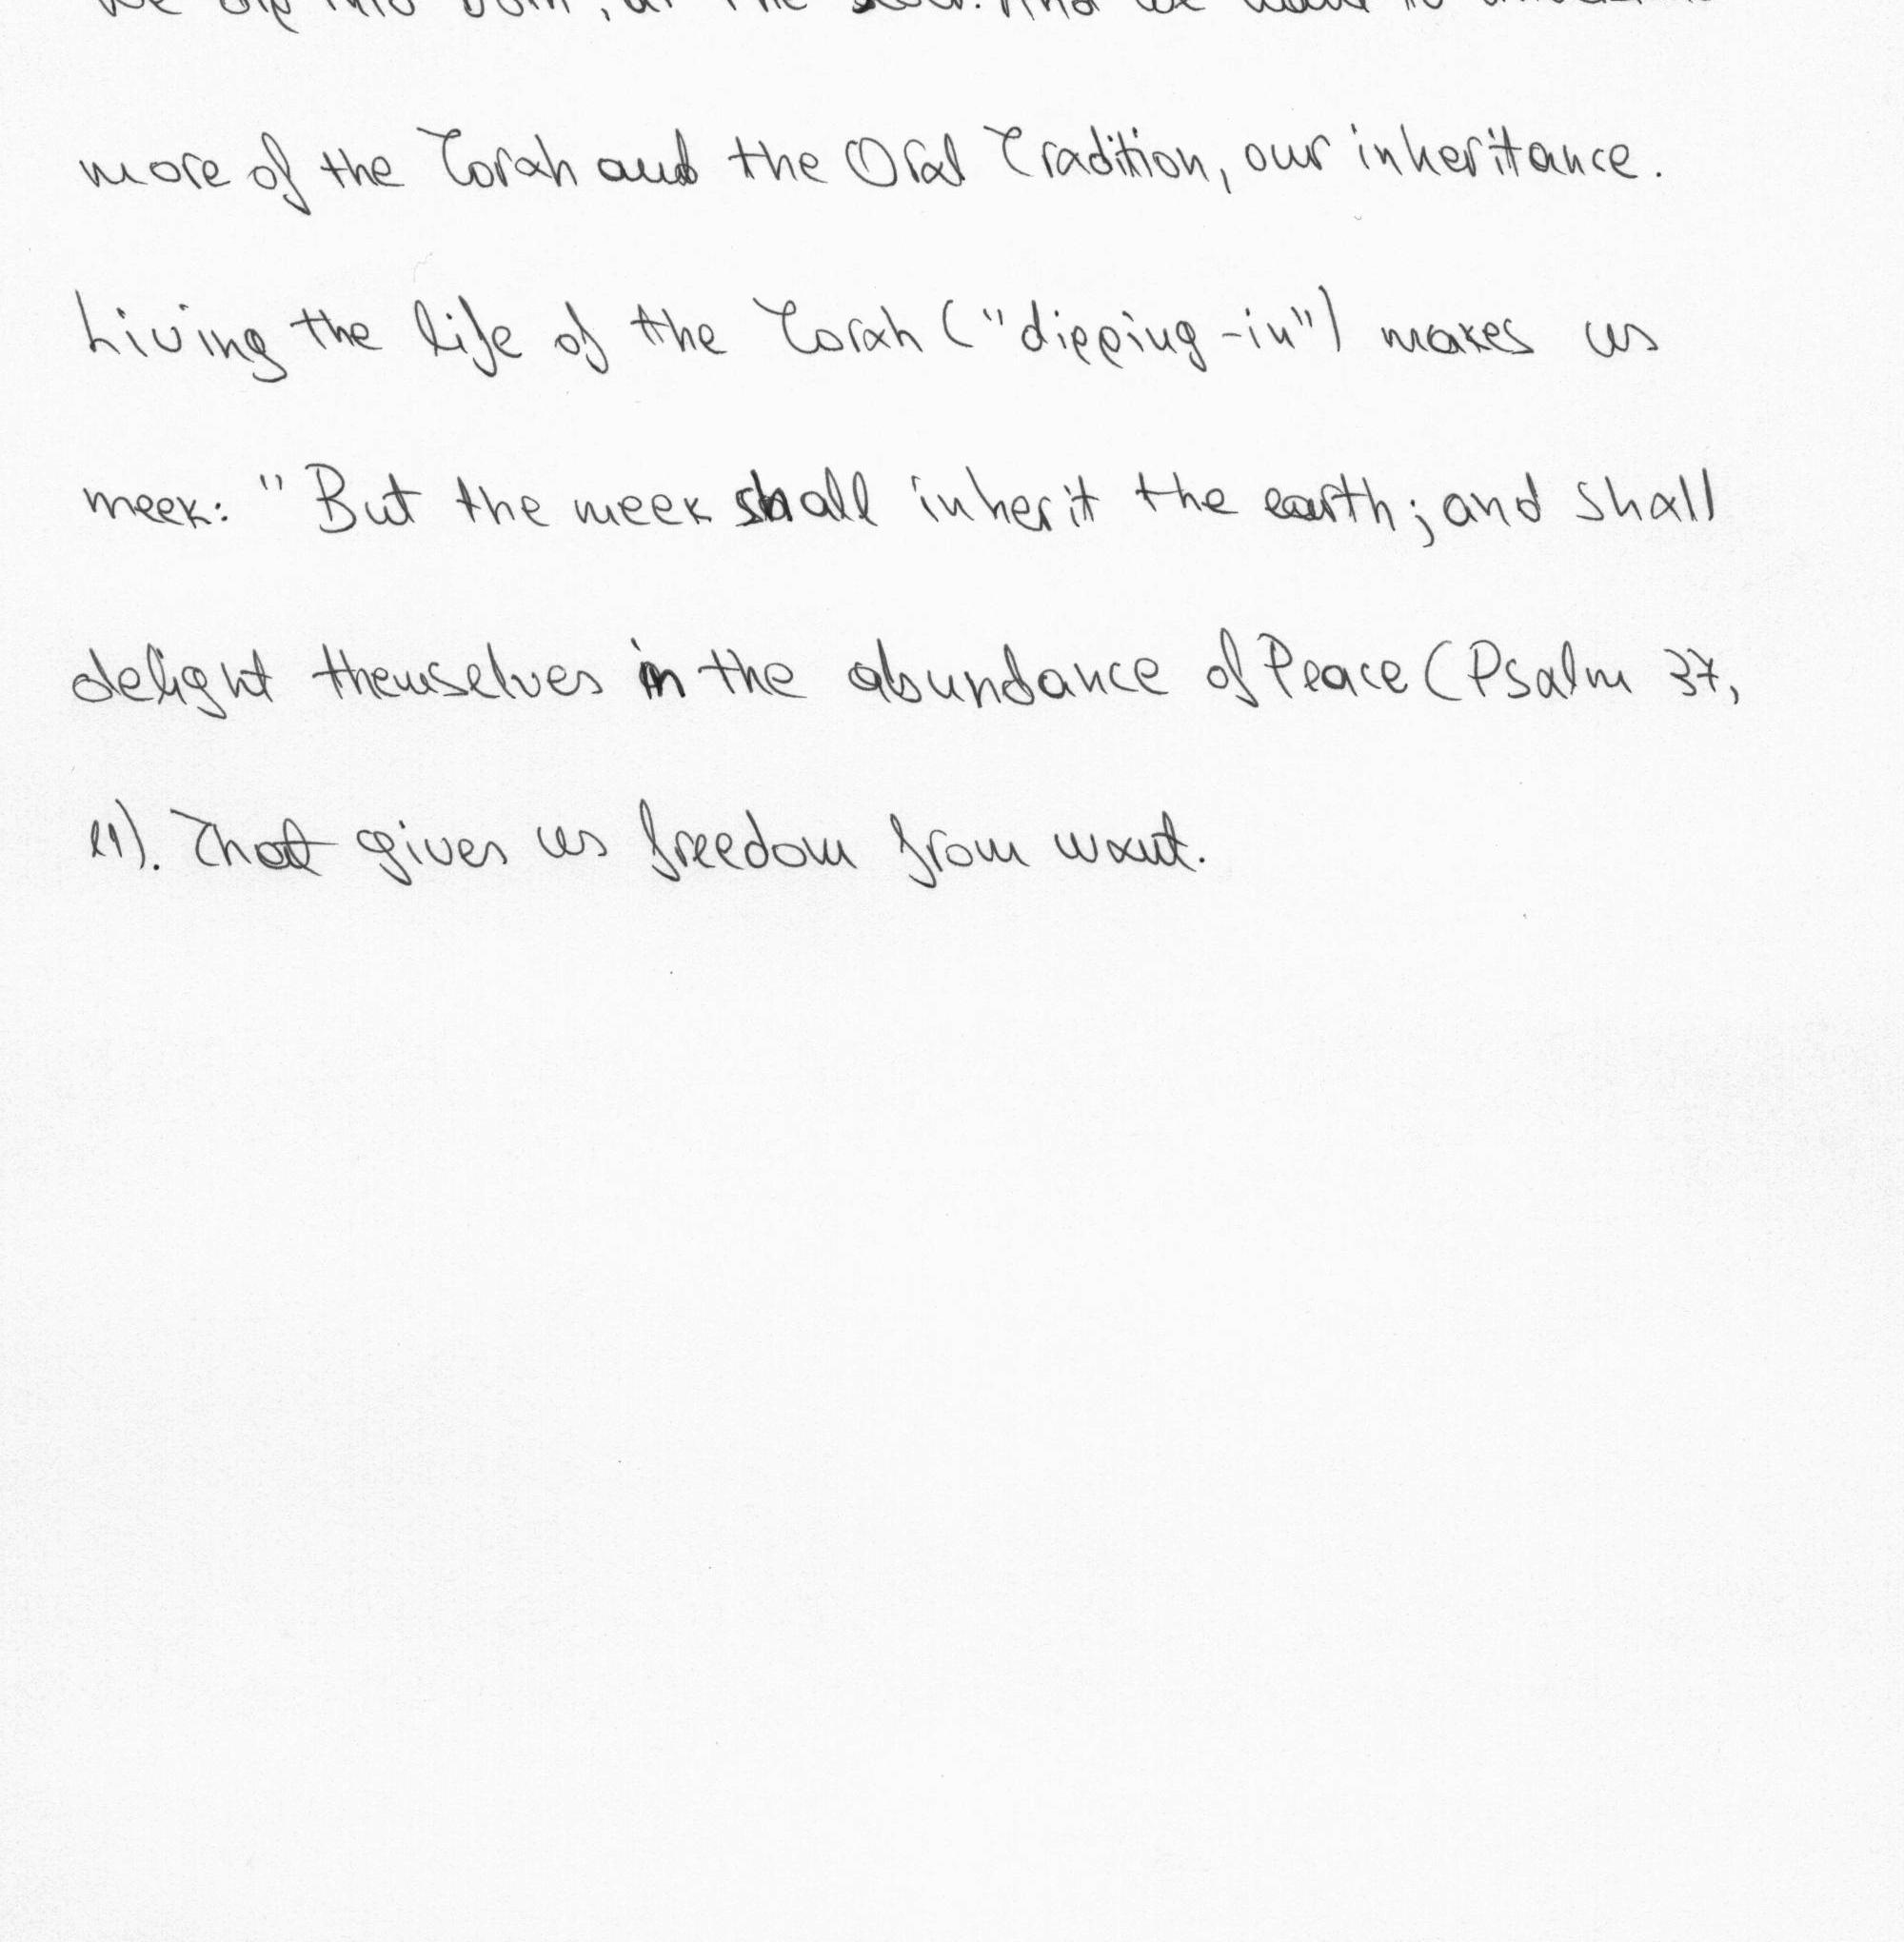 we dip into both, at the Seder. And we want to
more of the Torah and the Oral Tradition, our inheritance.
Living the life of the Torah ("dipping-in") makes us
meek: "But the meek shall inherit the earth; and shall
delight themselves in the abundance of Peace (Psalm 37,
11). That gives us freedom from want.